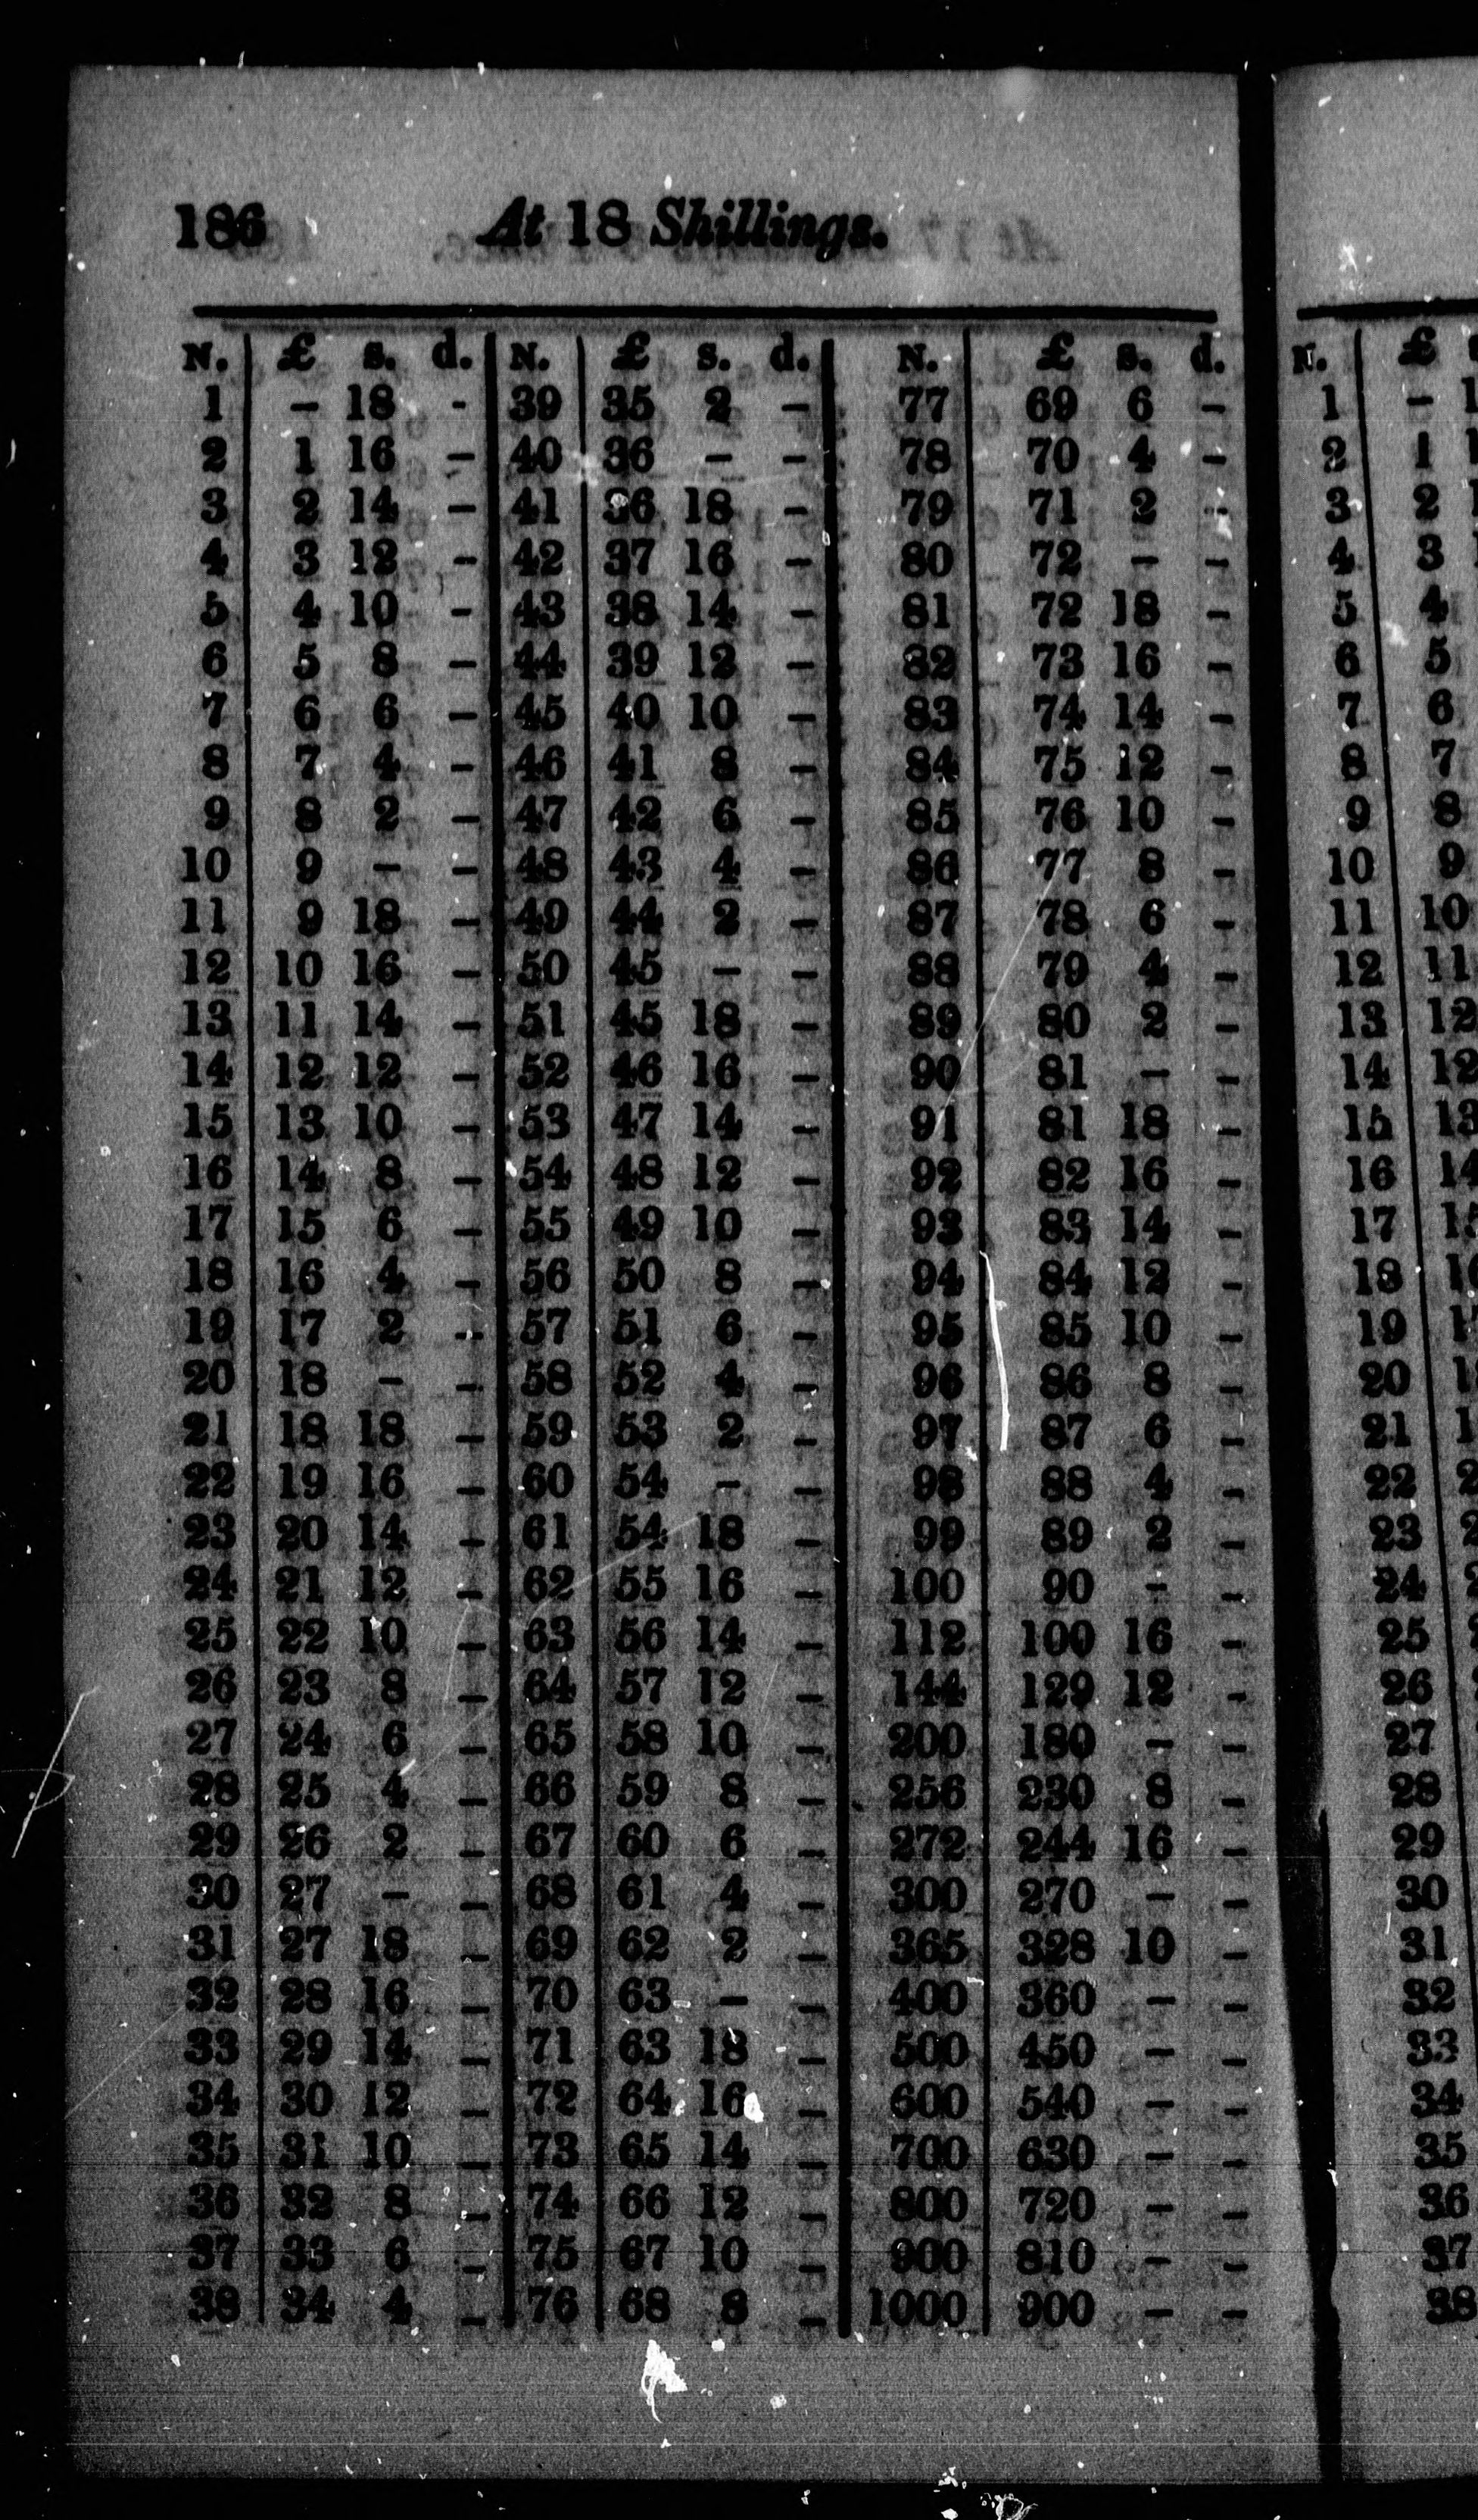 186 At 18 Shillings.
N. £ s. d. N. £ s. d. N. £ s. d.
1 – 18 - 39 35 2 – 77 69 6 –
2 1 16 – 40 36 – – 78 70 4 –
3 2 14 – 41 36 18 – 79 71 2 -
4 3 12 – 42 37 16 – 80 72 – –
5 4 10 - 43 38 14 – 81 72 18 –
6 5 8 – 44 39 12 – 82 73 16 –
7 6 6 – 45 40 10 – 83 74 14 –
8 7 4 – 46 41 8 – 84 75 12 –
9 8 2 – 47 42 6 – 85 76 10 –
10 9 – – 48 43 4 – 86 77 8 –
11 9 18 – 49 44 2 – 87 78 6 –
12 10 16 – 50 45 – – 88 79 4 –
13 11 14 – 51 45 18 – 89 80 2 –
14 12 12 – 52 46 16 – 90 81 – –
15 13 10 – 53 47 14 – 91 81 18 –
16 14 8 – 54 48 12 – 92 82 16 –
17 15 6 – 55 49 10 – 93 83 14 –
18 16 4 – 56 50 8 – 94 84 12 –
19 17 2 – 57 51 6 – 95 85 10 –
20 18 – – 58 52 4 – 96 86 8 –
21 18 18 – 59 53 2 – 97 87 6 –
22 19 16 – 60 54 – – 98 88 4 –
23 20 14 – 61 54 18 – 99 89 2 –
24 21 12 – 62 55 16 – 100 90 - –
25 22 10 – 63 56 14 – 112 100 16 –
26 23 8 – 64 57 12 – 144 129 12 –
27 24 6 – 65 58 10 – 200 180 – –
28 25 4 – 66 59 8 – 256 230 8 –
29 26 2 – 67 60 6 – 272 244 16 –
30 27 – – 68 61 4 – 300 270 – –
31 27 18 – 69 62 2 – 365 328 10 –
32 28 16 – 70 63 – – 400 360 – –
33 29 14 – 71 63 18 – 500 450 – –
34 30 12 – 72 64 16 – 600 540 – –
35 31 10 – 73 65 14 – 700 630 – –
36 32 8 – 74 66 12 – 800 720 – –
37 33 6 – 75 67 10 – 900 810 – –
38 34 4 – 76 68 8 – 1000 900 – –
N. £
1 –
2 1
3 2
4 3
5 4
6 5
7 6
8 7
9 8
10 9
11 10
12 11
13 12
14 12
15 13
16 14
17
18
19
20
21
22
23
24
25
26
27
28
29
30
31
32
33
34
35
36
37
38